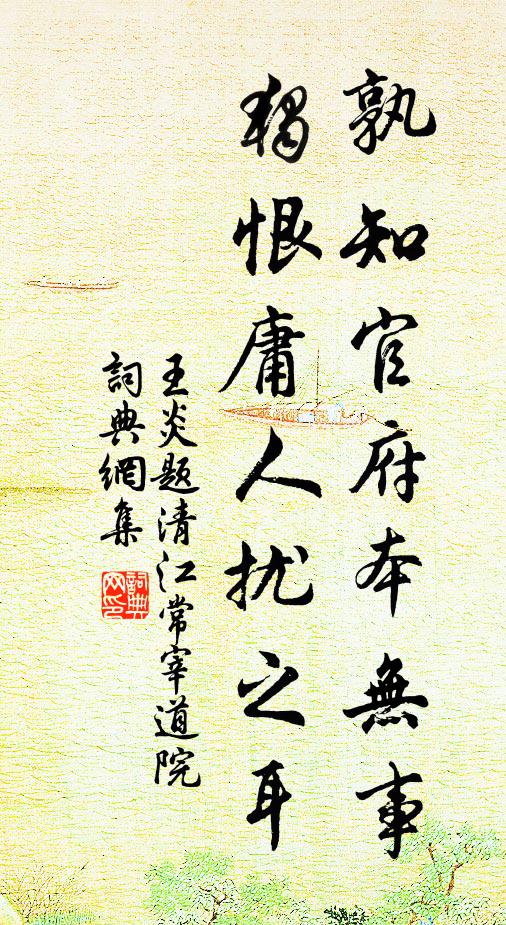 孰知官府本無事
獨恨庸人扰之耳
王炎题清江常宰道院
詞典網集
詞典网印